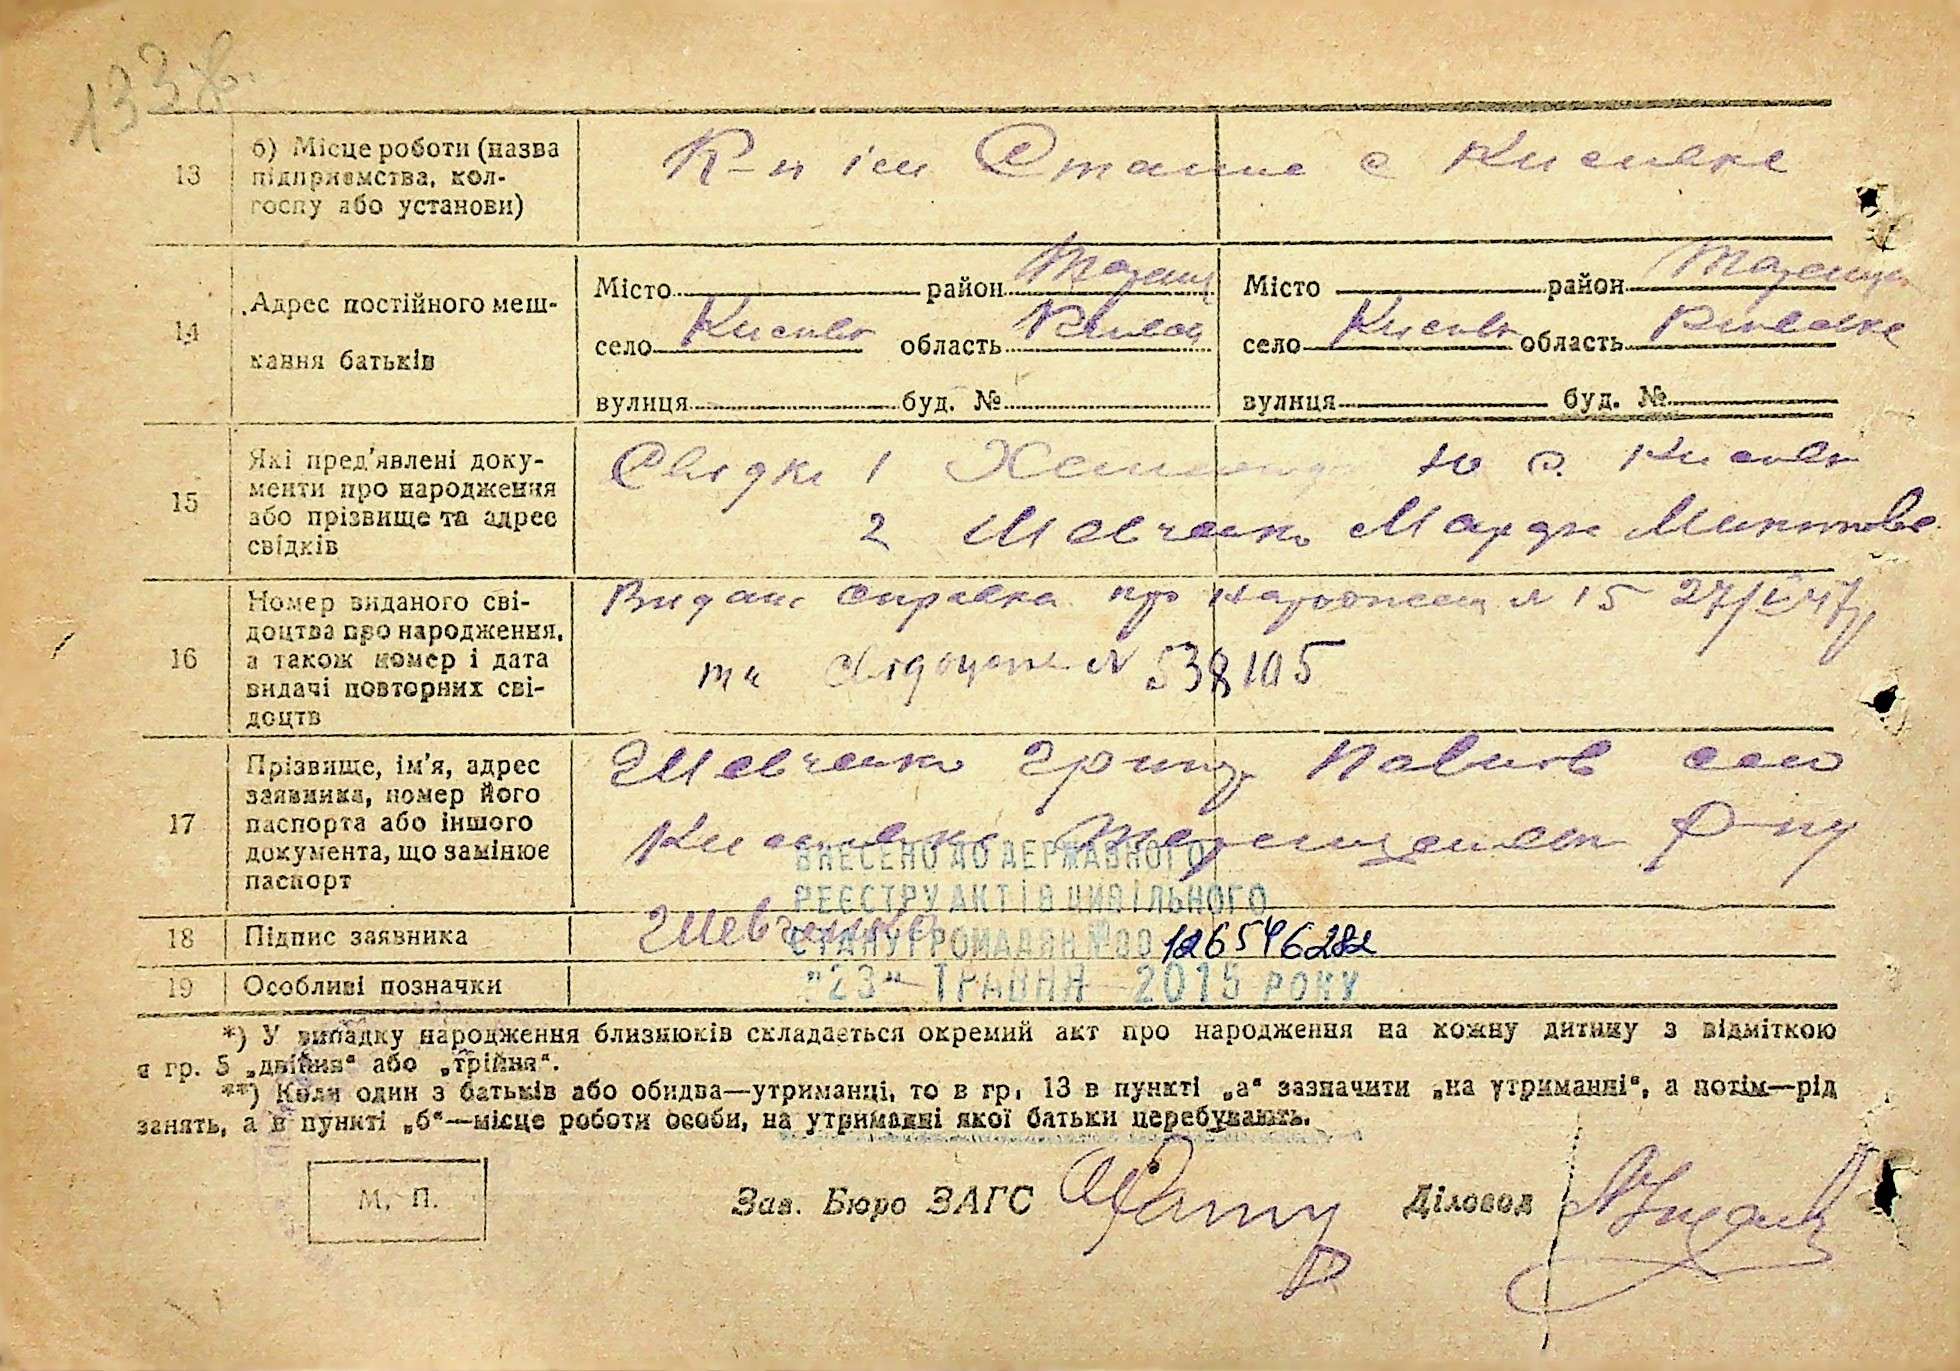 133
13
б) Місце роботи (назва
підприємства, кол-
госпу або установи)
К-п ім Сталіна с Кислівка
14
Адрес постійного меш-
кання батьків
Місто район Тараща
село Кислівка область Київськ
вулиця буд. №
Місто район Таращан
село Кислівка область Київська
вулиця буд. №
15
Які пред'явлені доку-
менти про народження
або прізвище та адрес
свідків
Свідки 1 Ю с. Кислівка
2 Шевченко Марія Микитовна
16
Номер виданого сві-
доцтва про народження,
а також номер і дата
видачі повторних сві-
доцтв
Видано справка про народження № 15
та свідоцтво № 538105
17
Прізвище, ім'я, адрес
заявника, номер його
паспорта або іншого
документа, що замінює
паспорт
Шевченко Павлов село
Кислівка Таращанськ р-ну
ВНЕСЕНО ДО ДЕРЖАВНОГО
РЕЄСТРУ АКТІВ ЦИВІЛЬНОГО
18
Підпис заявника
Шевченко
СТАНУ ГРОМАДЯН №00126546282
19
Особливі позначки
"23" ТРАВНЯ 2015 РОКУ
*) У випадку народження близнюків складається окремий акт про народження на кожну дитину з відміткою
в гр. 5 „двійня" або „трійня".
**) Коли один з батьків або обидва—утриманці, то в гр. 13 в пункті „а" зазначити „на утриманні", а потім—рід
занять, а в пункті „б"—місце роботи особи, на утриманні якої батьки перебувають.
М. П.
Зав. Бюро ЗАГС
Діловод